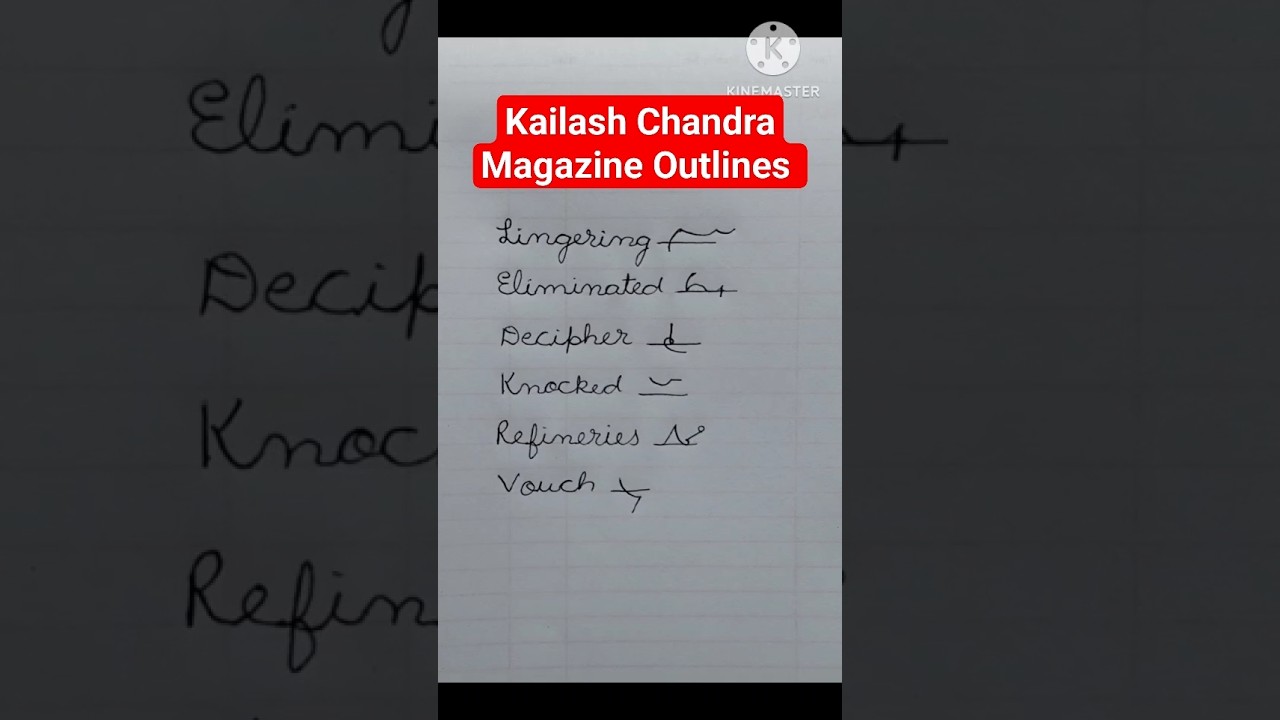 KINEMASTER
Kailash Chandra
Magazine Outlines
Lingering
Eliminated
Decipher
Knocked
Refineries
Vouch